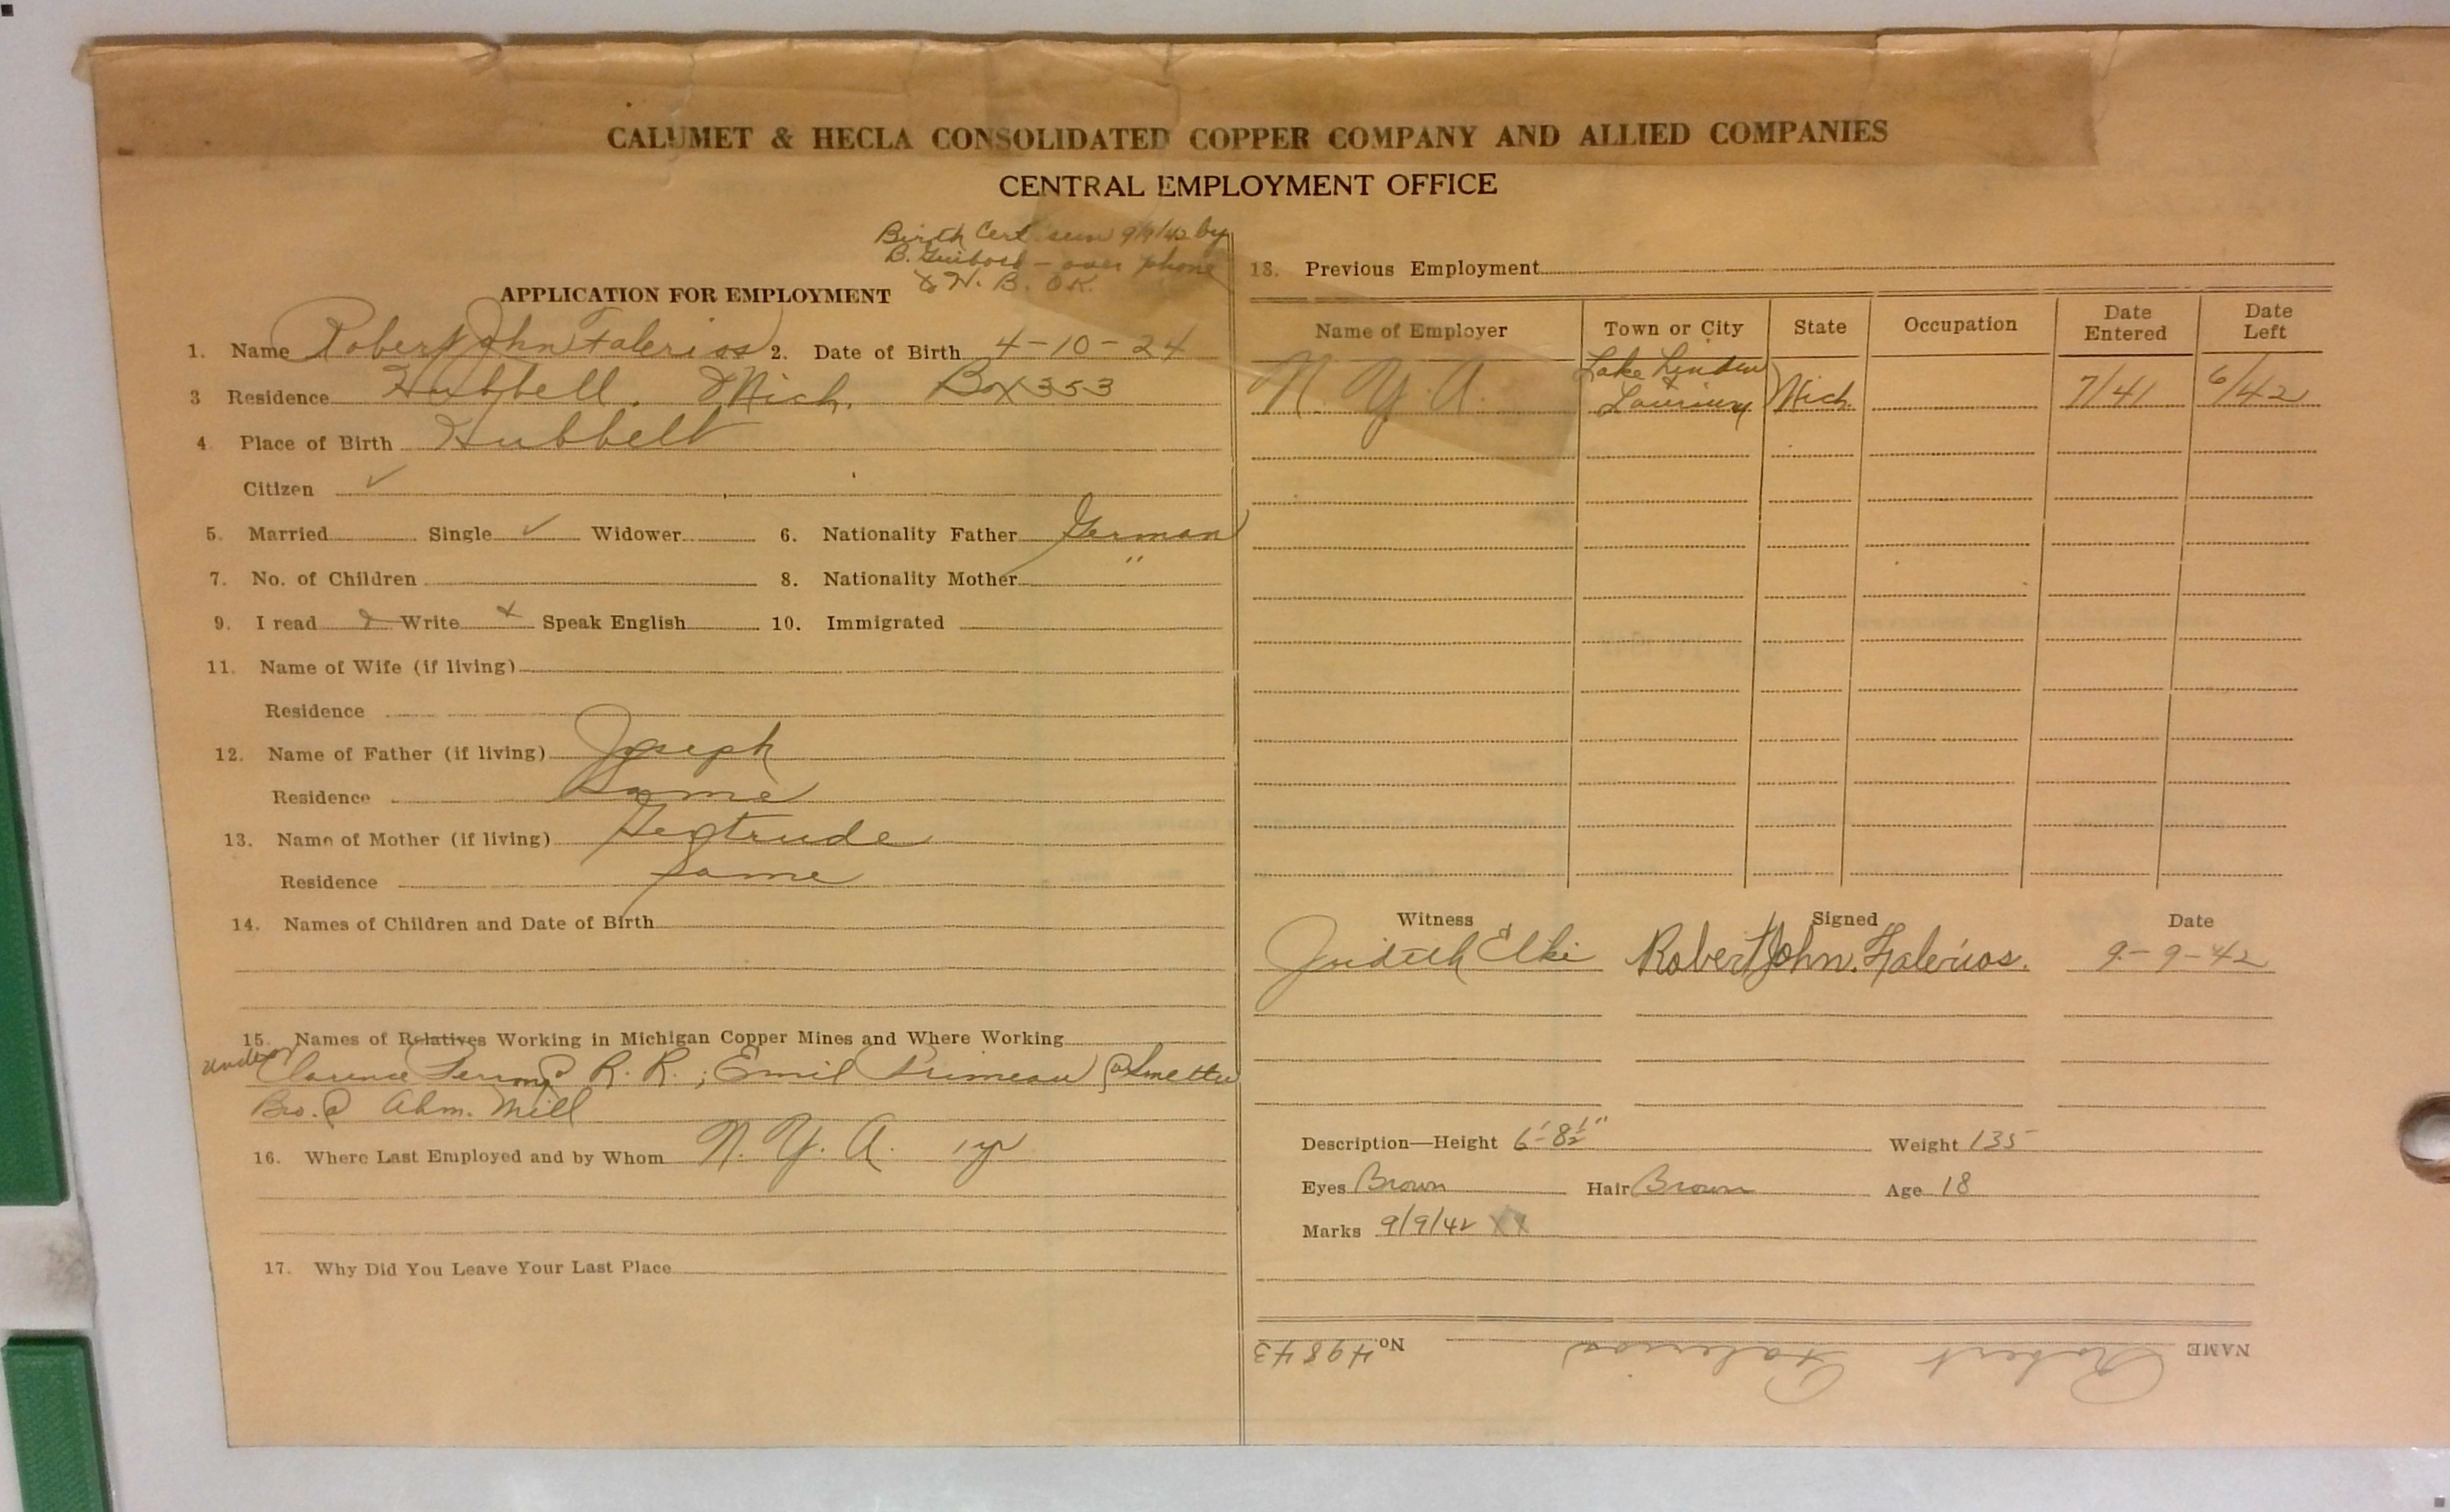 CALUMET & HECLA CONSOLIDATED COPPER COMPANY AND ALLIED COMPANIES
CENTRAL EMPLOYMENT OFFICE
Birth Cert. seen 9/9/42 by
B. - over phone
H. B. OK.
APPLICATION FOR EMPLOYMENT
1. Name Robert John Falerios 2. Date of Birth 4-10-24
3 Residence Hubbell, Mich. Box 353
4. Place of Birth Hubbell
Citizen ✓
5. Married Single ✓ Widower 6. Nationality Father German
7. No. of Children 8. Nationality Mother "
9. I read & Write & Speak English 10. Immigrated
11. Name of Wife (if living)
Residence
12. Name of Father (if living) Joseph
Residence Same
13. Name of Mother (if living) Gertrude
Residence Same
14. Names of Children and Date of Birth
15. Names of Relatives Working in Michigan Copper Mines and Where Working
Clarence @ R. R.; Emil Primeau @ Smelter
Bro. @ Ahm. Mill
16. Where Last Employed and by Whom N. Y. A. 1 yr
17. Why Did You Leave Your Last Place
18. Previous Employment
Name of Employer Town or City State Occupation Date Entered Date Left
N. Y. A. Lake Linden & Laurium Mich. 7/41 6/42
Witness Signed Date
Judith Elki Robert John. Falerios. 9-9-42
Description—Height 6'-8½" Weight 135
Eyes Brown Hair Brown Age 18
Marks 9/9/42 XX
NAME Robert Falerios No. 49843